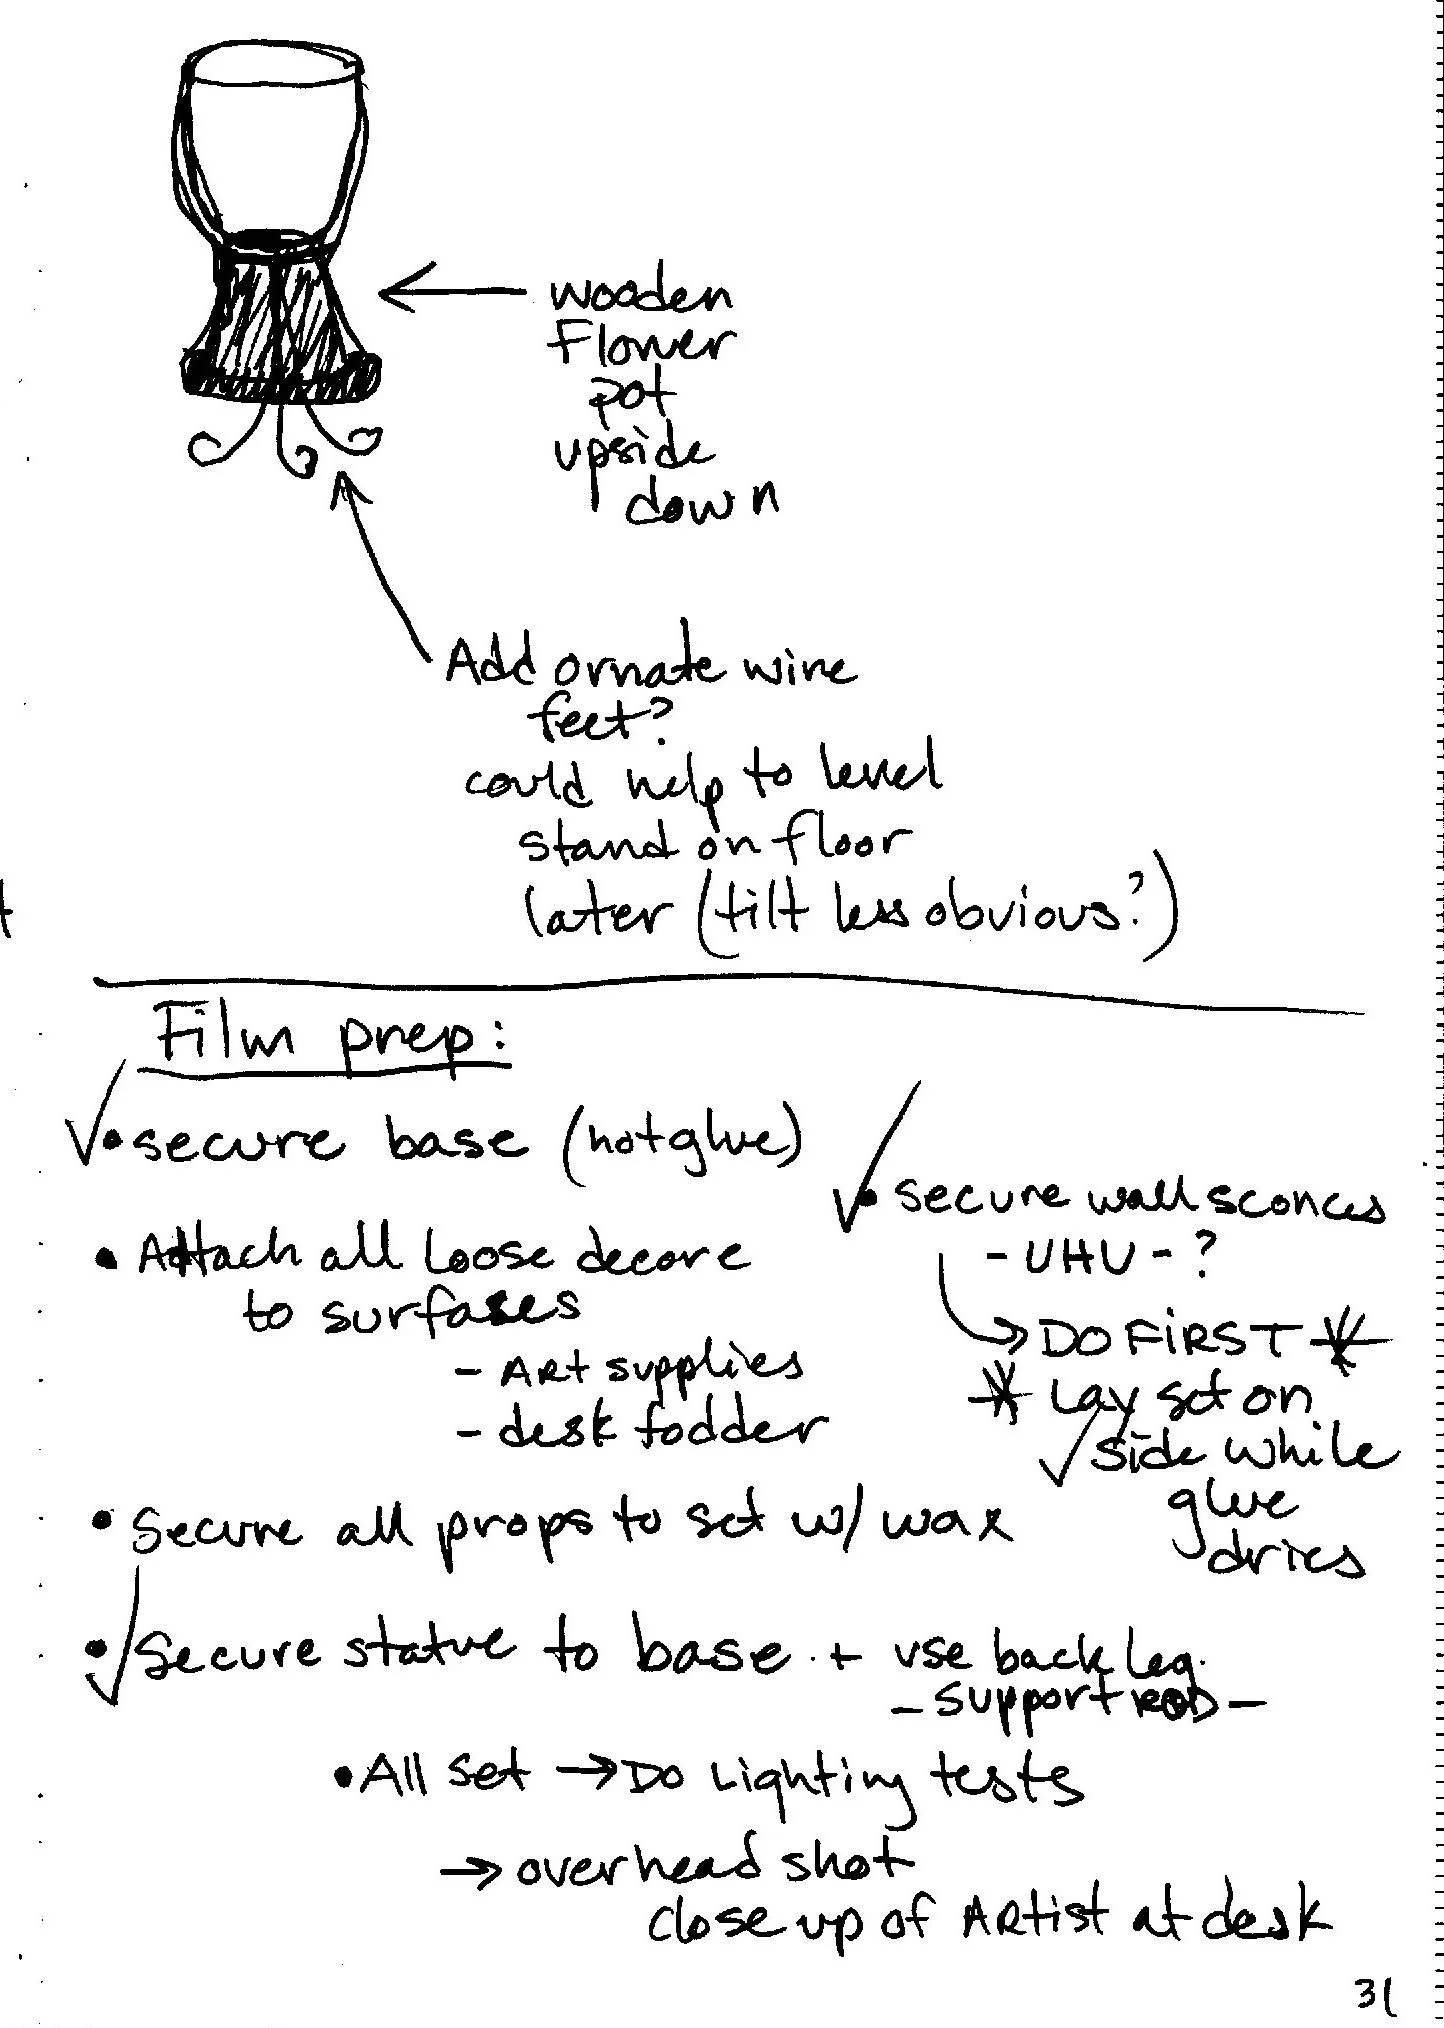 wooden
Flower
pot
upside
down
Add ornate wire
feet?
could help to level
stand on floor
later (tilt less obvious?)
t
Film prep:
• secure base (hotglue)
• Attach all loose decore
to surfases
- Art supplies
- desk fodder
• secure wall sconces
- UHU - ?
→ DO FiRST *
* Lay set on
side while
glue
dries
• Secure all props to set w/ wax
• Secure statue to base. + use back leg.
- support ROD -
• All set → Do Lighting tests
→ overhead shot
close up of Artist at desk
31